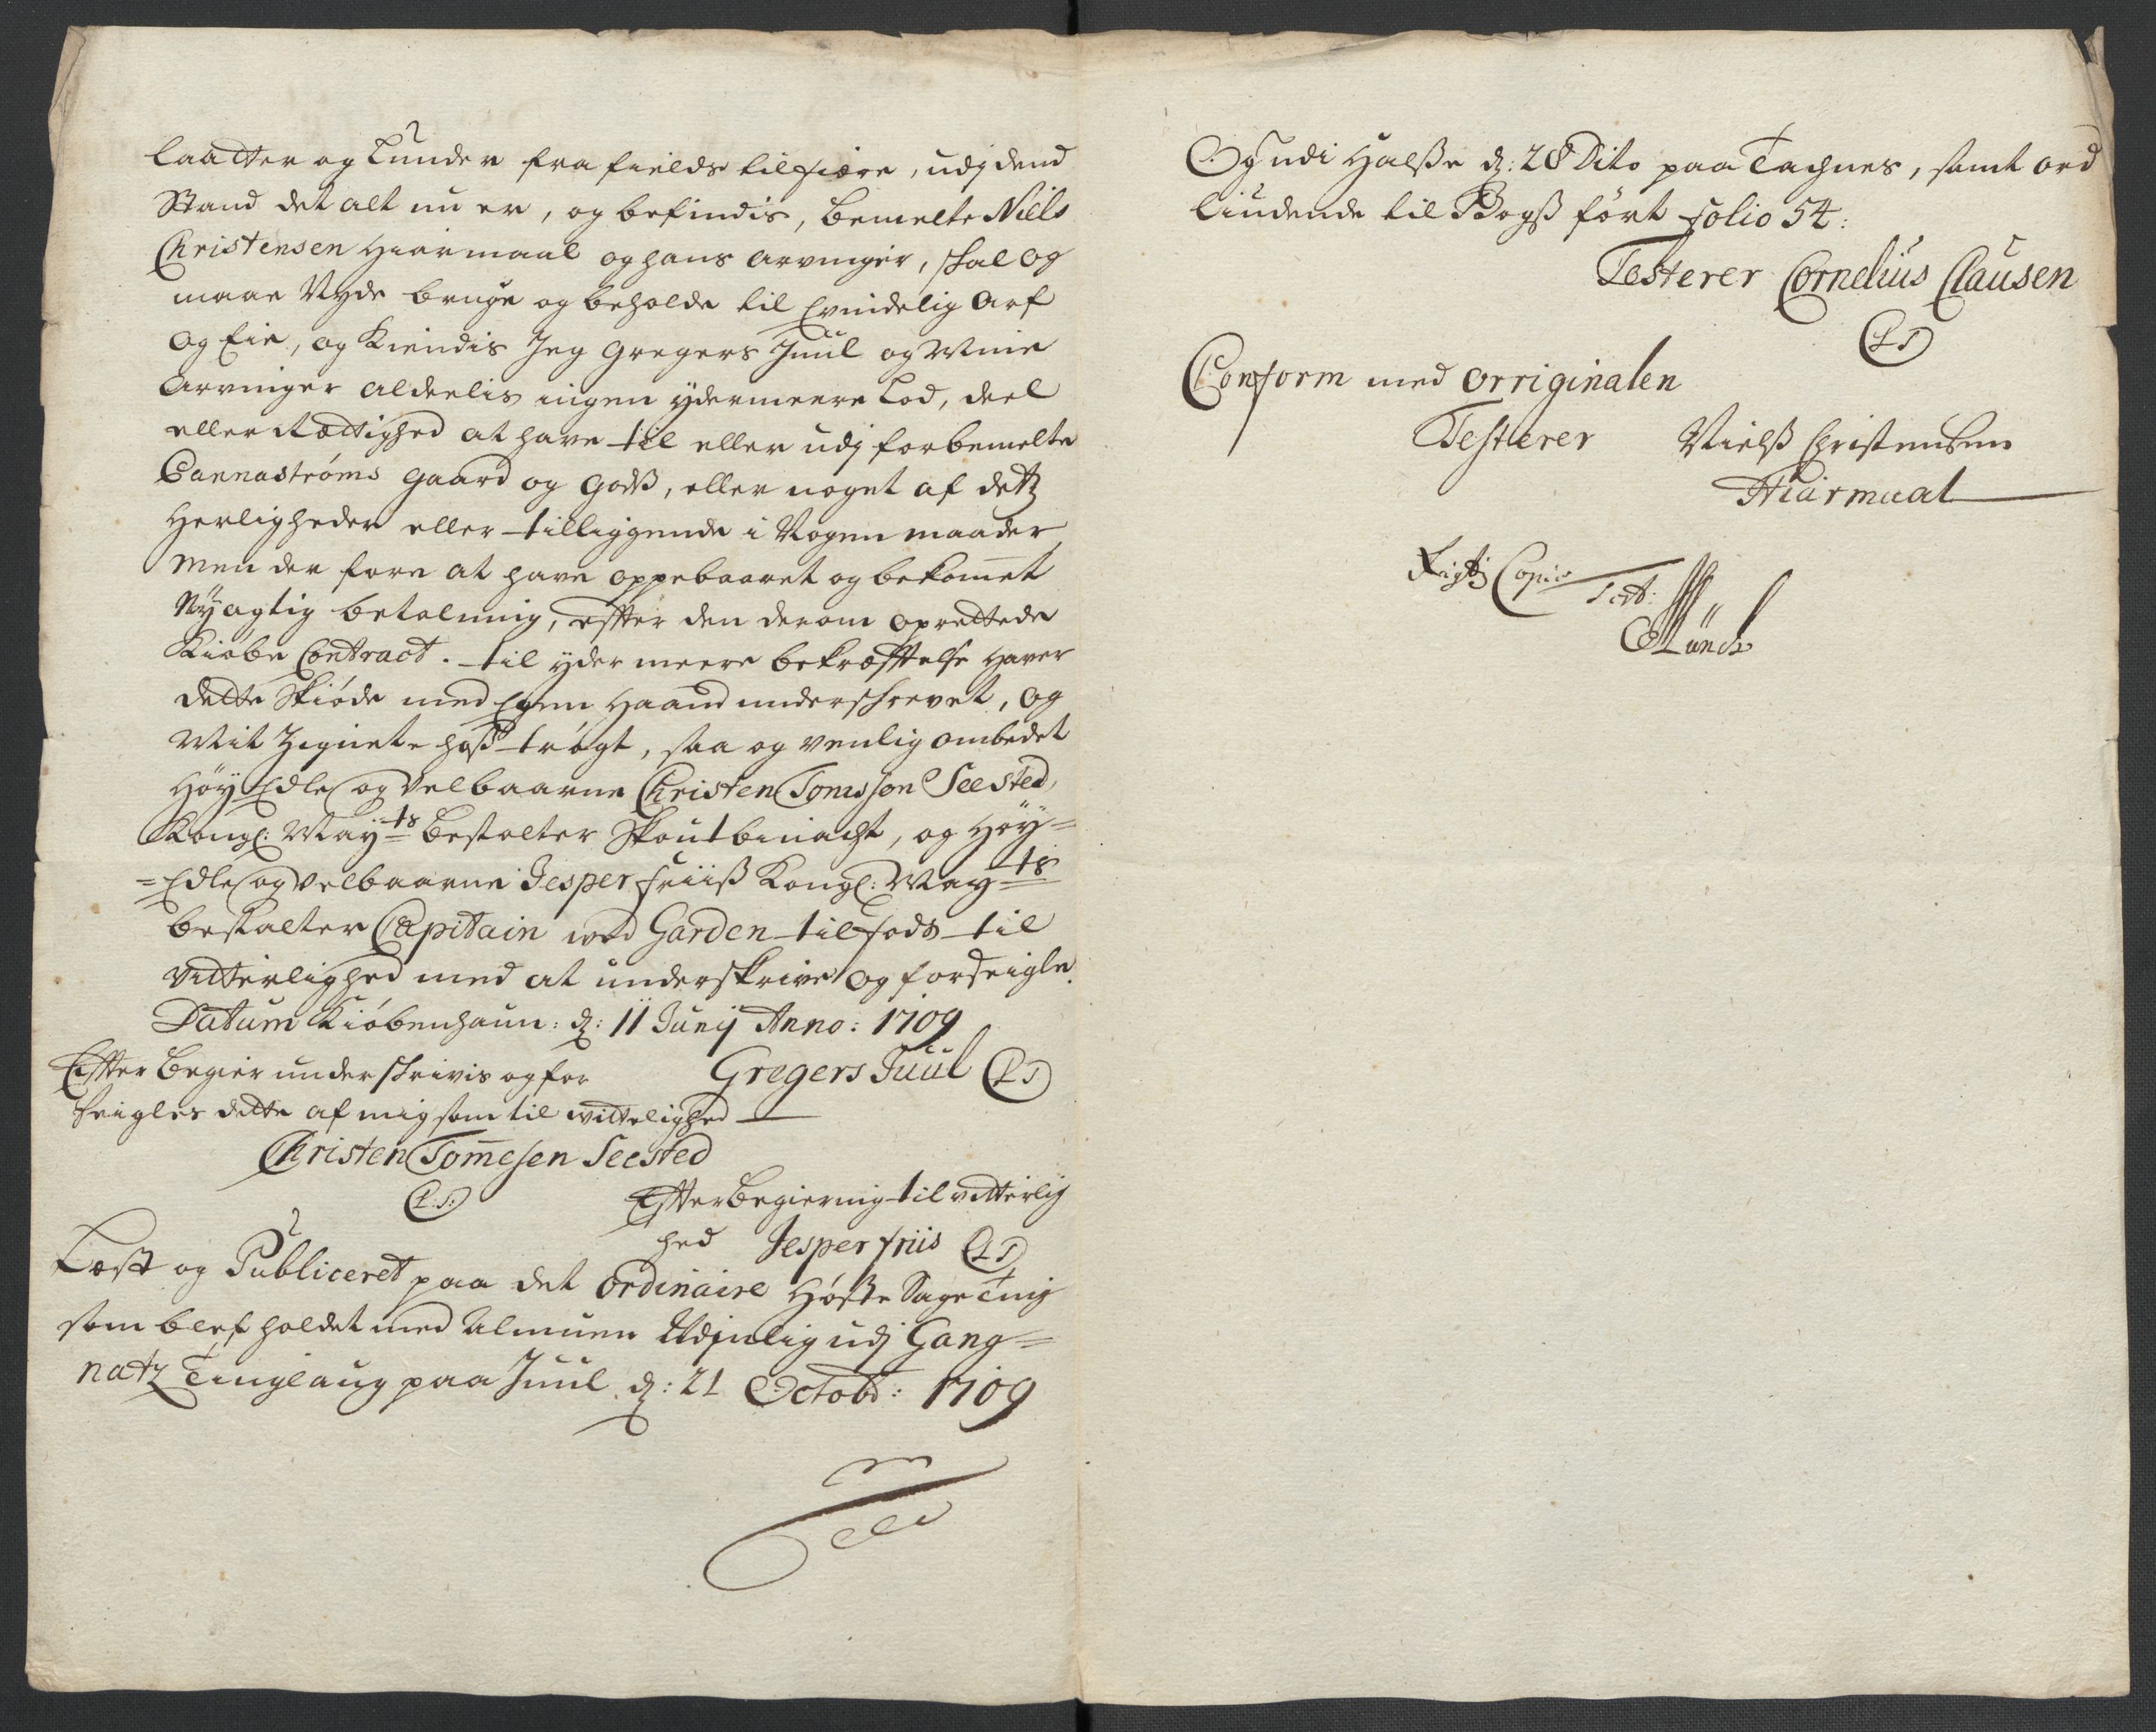 laatter og Lunder fra fields til fiære, udj dend
Stand det alt nu er, og befindis, bemelte Niels
Christensen Hiármaal og hans arvinger, skal og
maae Nyde bruge og beholde til Evindelig Arf
og Eie, og kiendis Jeg Gregers Juul og Mine
Arvinger aldeelis ingen ydermeere Lod, deel
eller Rættighed at have til eller udj forbemelte
Dannastrøms gaard og godß, eller noget af detz
Herligheder eller tilliggende i Nogen maader
Men der fore at have oppebaaret og bekomet
Nyagtig betalning, effter den derom oprettede
Kiøbe Contract. til yder meere bekræfftelse haver
dette Skiøde med Egen Haand underschrevet, og
Mit Zignete hoß trøgt, saa og venlig ombedet
Høy Edle og velbaarne Christen Tomsson Seested,
Kongl: May:ts bestalter Skoutbinacht, og Høy=
=Edle og velbaarne Jesper friiß Kongl: May:ts
bestalter Capitain ved Garden til fods til
vitterlighed med at underskrive og forseigle.
Datum Kiøbenhaun: d: 11 Junij Anno: 1709
Effter begier underschrivis og for Gregers Juul (LS)
seigles dette af mig som til vittelighed
Christen Tomesen Seested
(L:S:) Effter begiering til vitterlig
hed Jesper friis (LS)
Læst og Publiceret paa det ordinaire Høste Sage Ting
som blef holdet med Almuen udj Gang=
natz Tinglaug paa Juul d: 21 Octobr: 1709
Og udi Halße d: 28 Dito paa Tachnes, samt ord
liudende til Bogß ført folio 54:
Testerer Cornelius Clausen
(LS)
Conform med orriginalen
Testerer Nielß Christensen
Hiarmaal
Rigtig Copie Test:
Münch